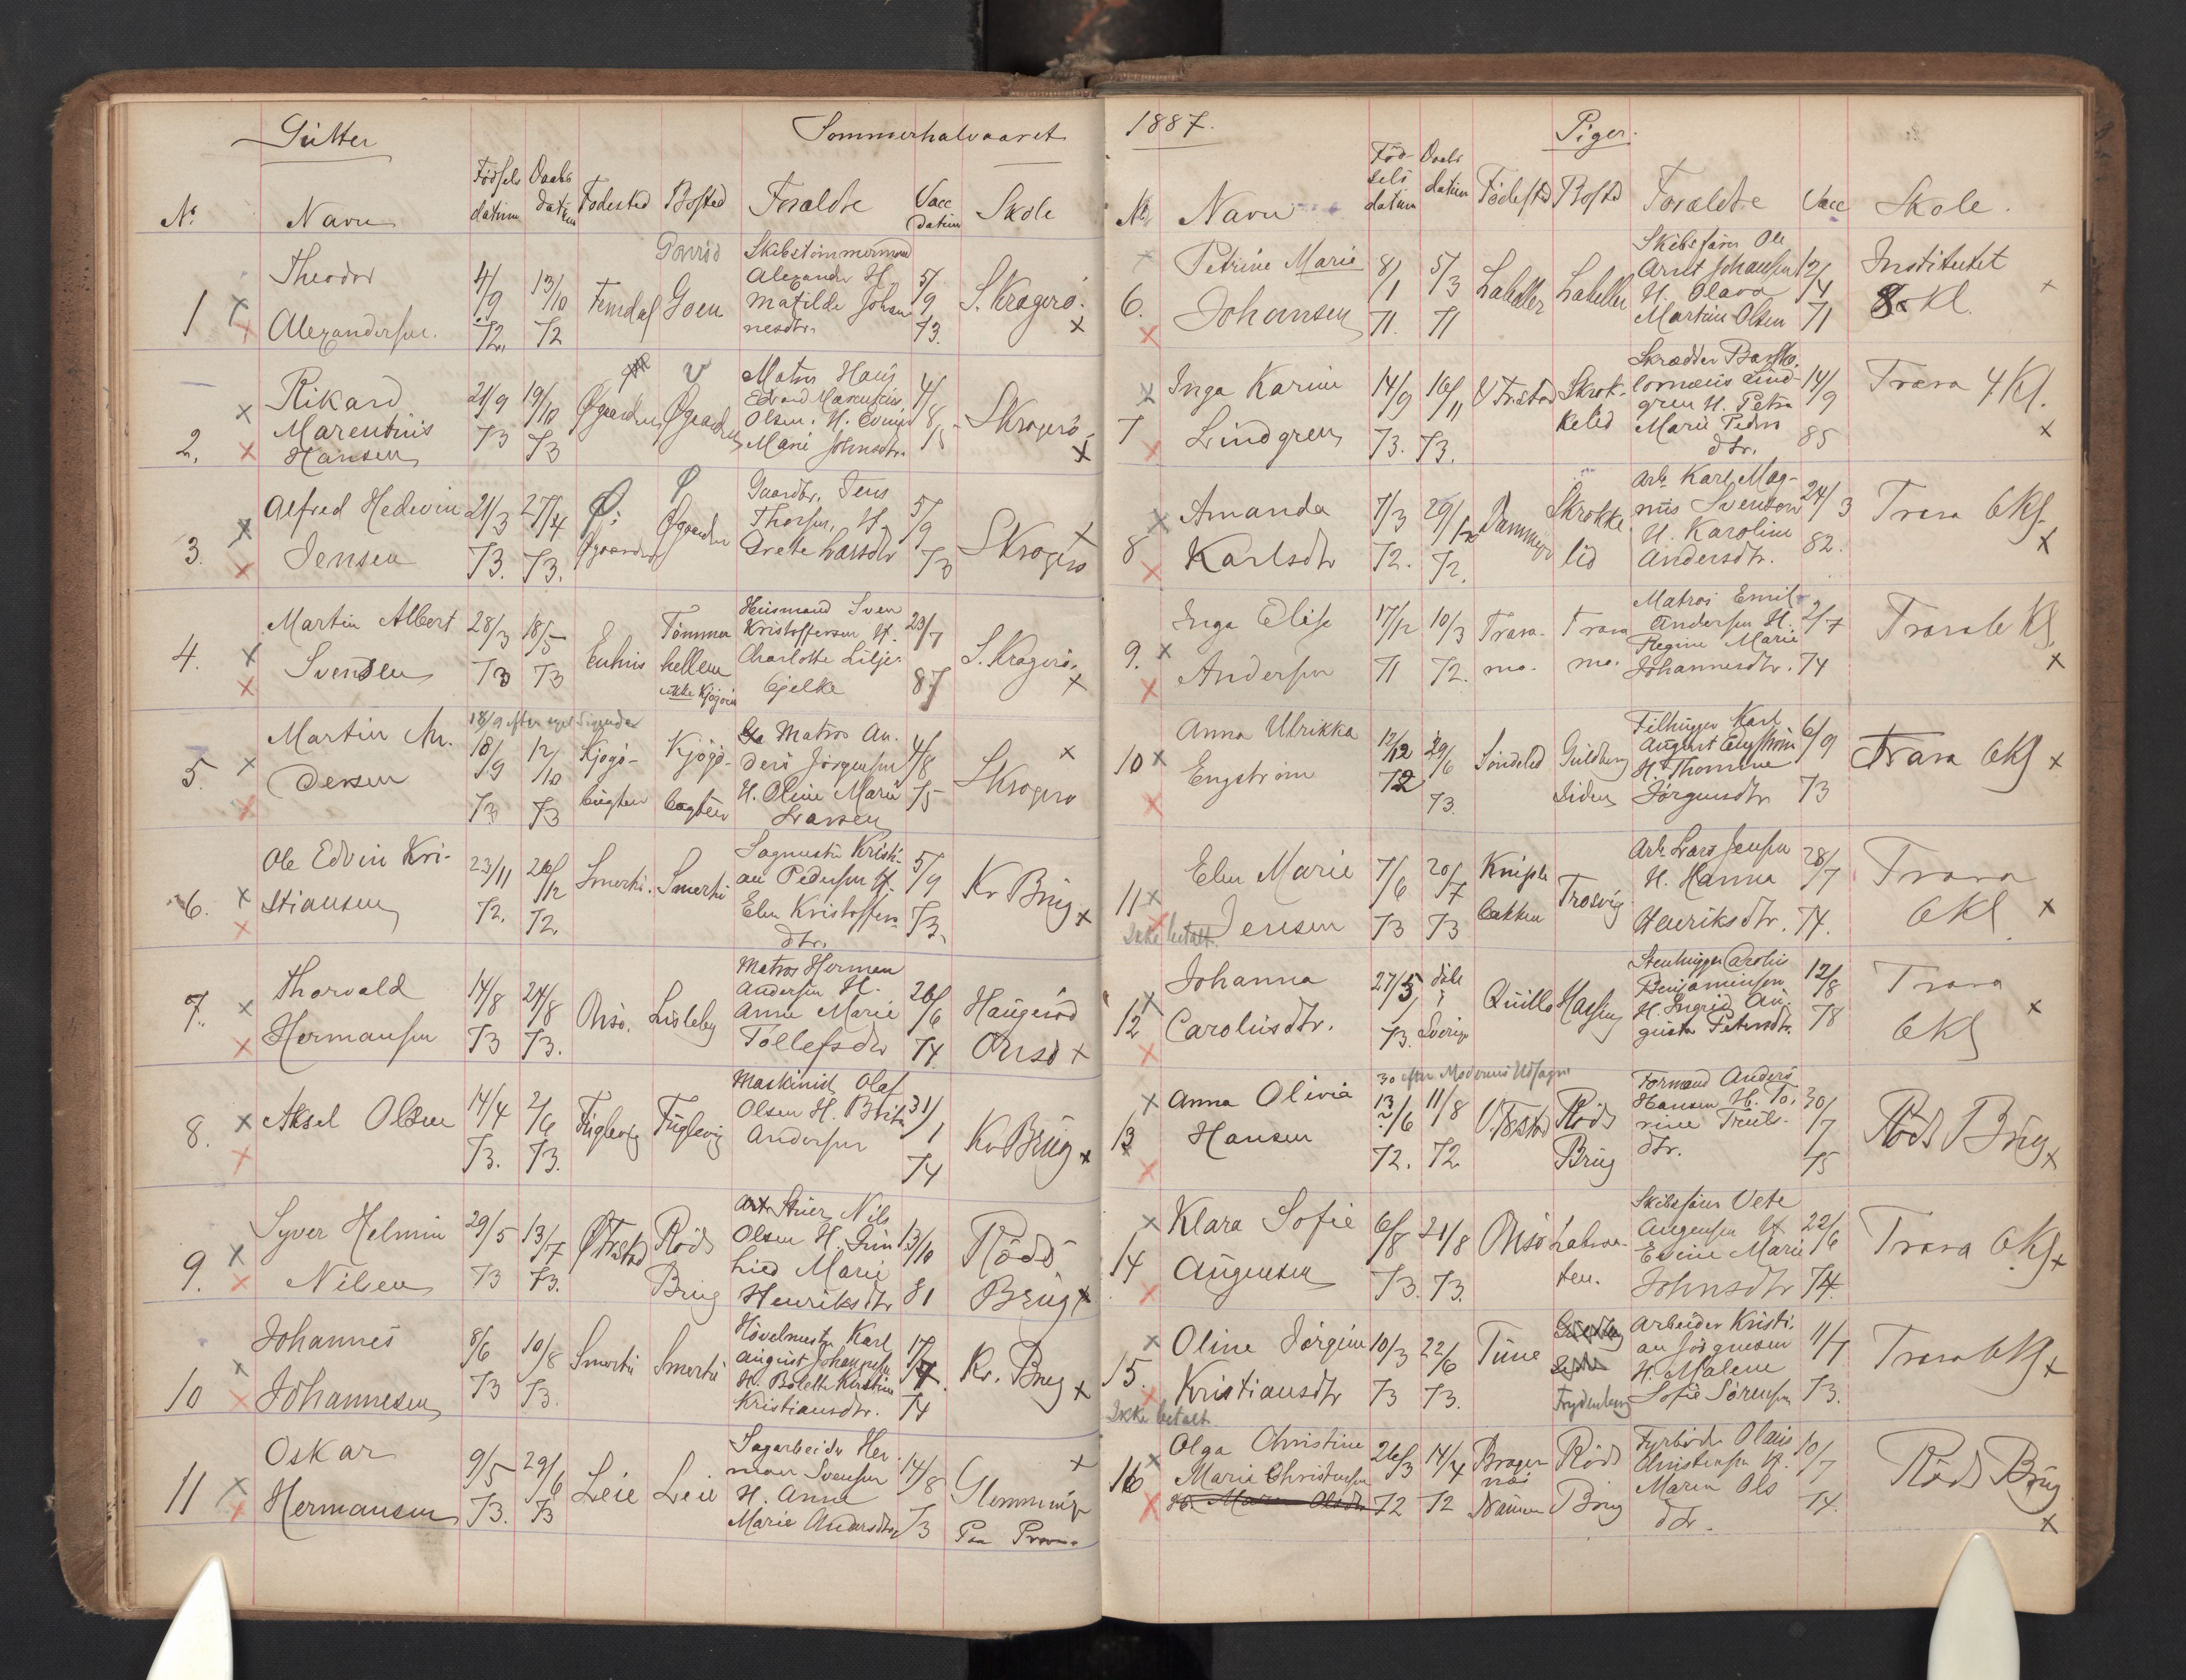 Gutter
Sommerhalvaaret
No
Navn
Födsels datum
Daabs datum
Födested
Bosted
Forældre
Vacc datum
Skole
1
Theodor
Alexandersen.
4/9 72.
13/10 72
Femdal
Goen
Skibstömmermand
Alexander H.
Matilde Johan
nesdtr.
5/9 73.
S. Kragerö.
2.
Rikard
Marentius
Hansen
21/9 73
19/10 73
Øgaarden
Øgaarden
Matros Hans
Edvard Marentius
Olsen. H.
Marie Johnsdtr.
4/8 75
S Kragerö
3.
Alfred Hedevin
Jensen
21/3 73.
27/4 73.
Øgaarden
Øgaarden
Gaardbr. Jens
Thorsen, H.
Grete Larsdtr
5/9 73
S Kragerö
4.
Martin Albert
Svendsen
28/3 73
18/5 73
Enhus
Tömmer
hellen
ikke Kjøgö
Husmand Sven
Kristoffersen H.
Charlotte Lilje
bjelke
23/7 87
S. Kragerö.
5.
Martin An.
dersen
18/9 efter eget Sigende
18/9 73
12/10 73
Kjøgö-
bugten
Kjøgö-
bugten
Matros An.
ders Jörgensen
H. Oline Marie
Larsen
4/8 75
S Kragerö
6.
Ole Edvin Kri-
stiansen
23/11 72.
26/12 72.
Smertu.
Smertu
Sagmester Kristi-
an Pedersen H.
Elen Kristoffers
dtr.
5/9 73.
Kr Brug
7.
Thorvald
Hermansen
14/8 73
24/8 73.
Onsö.
Lisleby
Matros Herman
Andersen H.
Anne Marie
Tollefsdtr
26/6 74.
Haugeröd
Onsö
8.
Aksel Olsen
14/4 73.
2/6 73.
Fuglevig
Fuglevig
Maskinist Olaf
Olsen H. Brita
Andersen
31/1 74
Kr Brug
9.
Syver Helmin
Nilsen
29/5 73
13/7 73.
Ø Frstad
Röds
Brug
Nils
Olsen H. Gun
hild Marie
Henriksdtr
13/10 81
Röds
Brug
10
Johannes
Johannesen
8/6 73
10/8 73.
Smertu
Smertu
Hövelmester Karl
August Johannesen
H. Bolette Kirstine
Kristiansdtr.
17/7 74
Kr. Brug
11
Oskar
Hermansen
9/5 73.
29/6 73
Leie
Leie
Sagarbeider Her
man Svensen
H. Anne
Marie Andersdtr
14/8 73
Glemminge
Paa Pröve
1887.
Piger.
No
Navn
Föd-
sels
datum
Daabs
datum
Födested
Bosted
Forældre
Vacc
Skole.
6.
Petrine Marie
Johansen
8/1 71.
5/3 71
Labeller
Labellen
Skibsförer Ole
Arnt Johansen
H. Olava
Martine Olsen
12/4 71
Institutet
8 Kl.
7
Inga Karine
Lindgren
14/9 73.
16/11 73.
V Frstad
Skrok-
kelid
Skrædder Bartho-
lomæus Lind-
gren H. Petra
Marie Peders
dtr.
14/9 85
Trara 4 Kl.
8
Amanda
Karlsdtr
7/3 72.
29/12 72.
Skrokke
lid
Arb. Karl Mag-
nus Svenson
H. Karoline
Andersdtr.
24/3 82.
Trara 6Kl
9.
Inga Elise
Andersen
17/12 71
10/3 72.
Trara-
mo.
Trara
mo.
Matros Emil
Andersen H.
Regine Marie
Johannesdtr.
2/7 74
Trara 6 Kl.
10
Anna Ulrikka
Engström
12/12 72
29/6 73.
Söndeled
Guldberg
siden
Filhugger Karl
August Engström
H. Thomine
Jörgensdtr
6/9 73
Trara 6Kl
11
Ikke betalt.
Elen Marie
Jensen
7/6 73
20/7 73
Kniple
bakken
Trosvig
Arb. Lars Jensen
H. Hanna
Henriksdtr.
28/7 74.
Trara
6Kl
12
Johanna
Carolusdtr.
27/5 73.
döbt
i
Sverige
Quille
Hassing
Stenhugger Carolus
Benjaminsen
H. Ingrid Au-
gusta Petersdtr.
12/8 78
Trara
6Kl
13
Anna Olivia
Hansen
30 efter Moderens Udsagn
13/6 72.
11/8 72
V. Frstad
Röds
Brug
Formand Anders
Hansen H. To-
rine Truls-
dtr.
30/7 75
Röds Brug
14
Klara Sofie
Augensen
6/8 73.
21/8 73.
Onsö
Labra-
ten.
Skibsförer Vete
Augensen H.
Evine Marie
Johnsdtr
22/6 74.
Trara 6Kl
15.
Ikke betalt
Oline Jörgine
Kristiansdtr
10/3 73
22/6 73.
Tune
Frydenberg
Arbeider Kristi-
an Jörgensen
H. Malene
Sofie Sörensen
11/7 73.
Trara 6Kl
16
Olga Christine
Marie Christensen
26/3 72
14/4 72
Brager
næs
Drammen
Röds
Brug
Fyrböder Olaus
Christensen H.
Maren Ols
dtr.
10/7 74.
Röds Brug